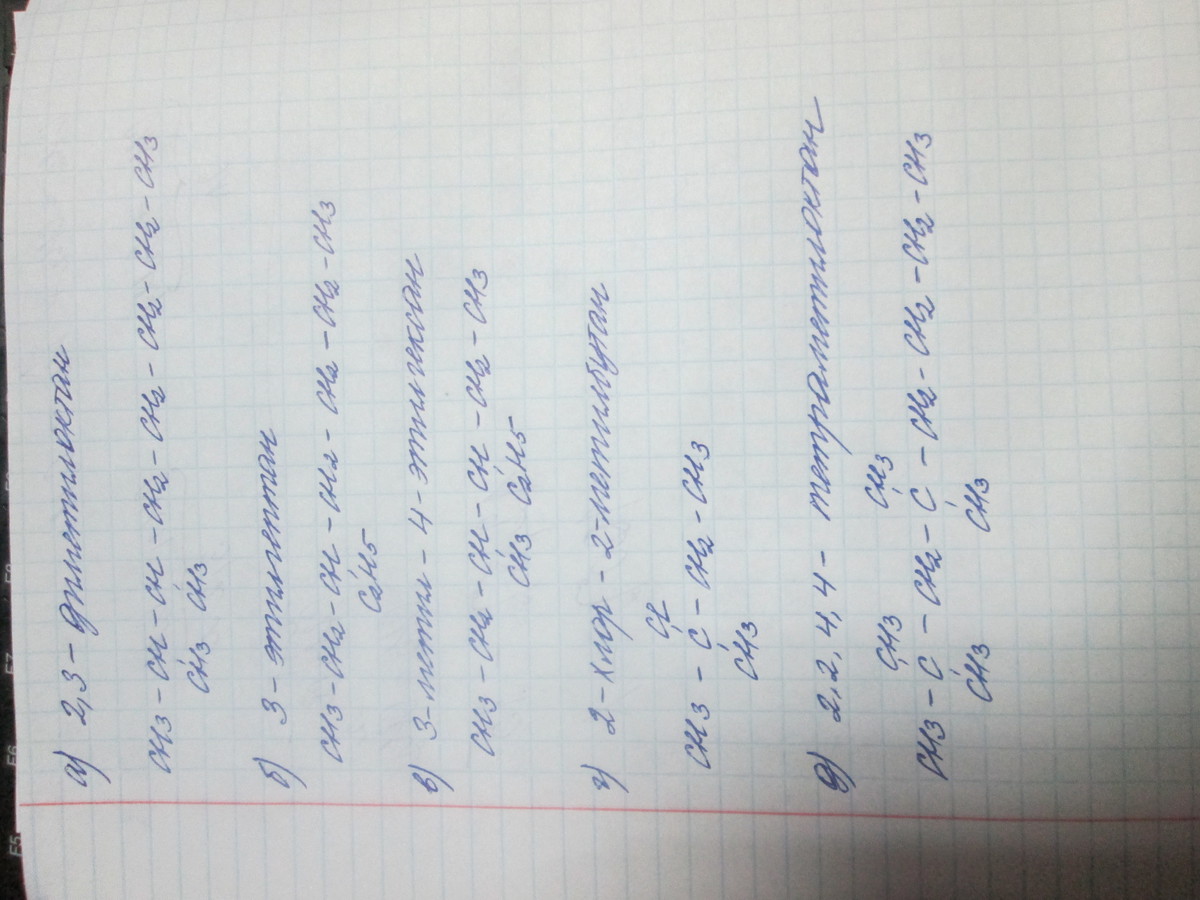 а) 2,3 - диметилоктан
CH3 - CH - CH - CH2 - CH2 - CH2 - CH2 - CH3
CH3 CH3
б) 3 - этилгептан
CH3 - CH2 - CH - CH2 - CH2 - CH2 - CH3
C2H5
в) 3-метил - 4 - этилгексан
CH3 - CH2 - CH - CH - CH2 - CH3
CH3 C2H5
г) 2 - хлор - 2-метилбутан
Cl
CH3 - C - CH2 - CH3
CH3
д) 2,2,4,4 - тетраметилоктан
CH3 CH3
CH3 - C - CH2 - C - CH2 - CH2 - CH2 - CH3
CH3 CH3
F5
F6
F7